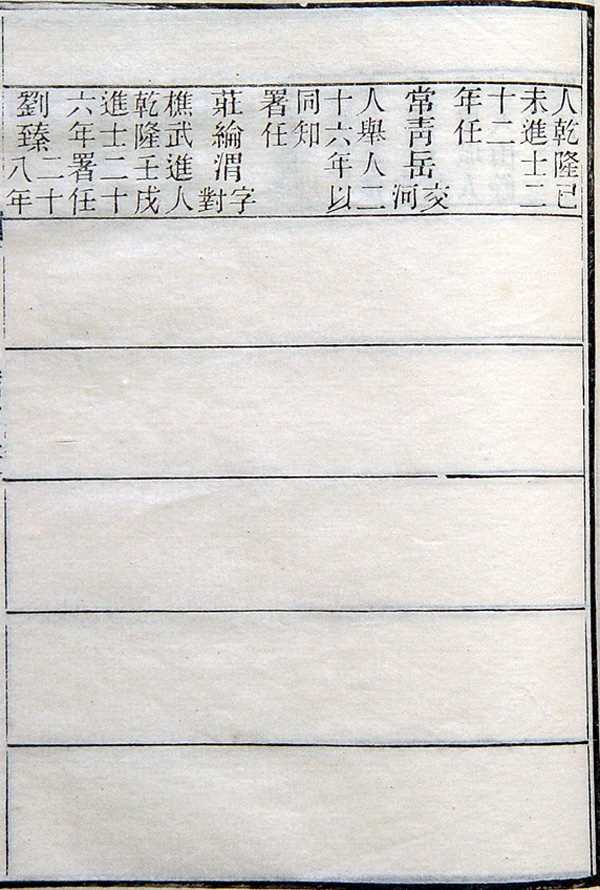 人乾隆己
未進士二
十二
年任
常青岳交
河
人舉人二
十六年以
同知
署任
莊綸渭字
對
樵武進人
乾隆壬戌
進士二十
六年署任
劉臻二十
八年